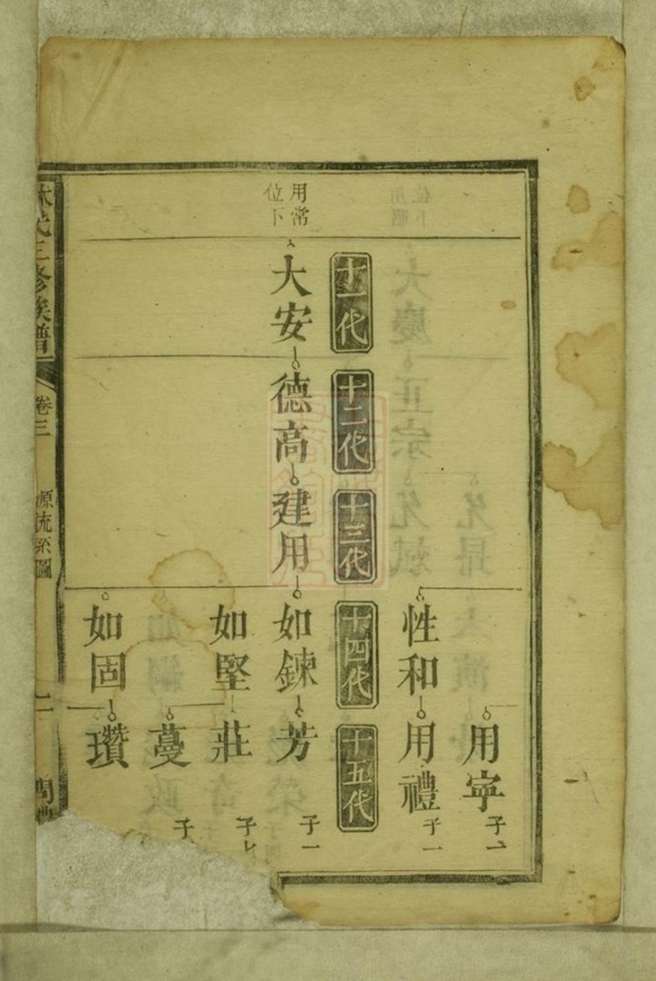 用寧
子一
性和
用禮
子一
十一代
十二代
十三代
十四代
十五代
用常
位下
大安
德高
建用
如鍊
芳
子一
如堅
莊
子
蔓
子
如固
瓚
林氏三修族譜
卷三
源流系圖